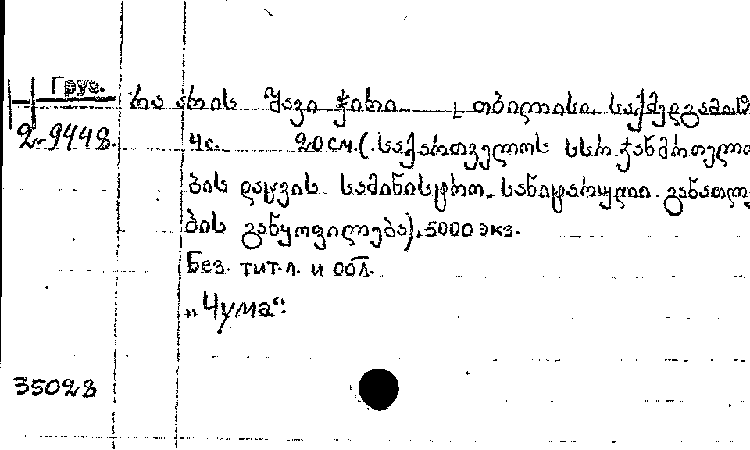 Груз.
რა არის შავი ჭირი. [თბილისი. საქმედგამი
2-9448.
4с. 20см. (საქართველოს სსრ ჯანმრთელო
ბის დაცვის სამინისტრო. სანიტარული განათლე
ბის განყოფილება). 5000 экз.
Без. тит. л. и обл.
„Чума“.
35028